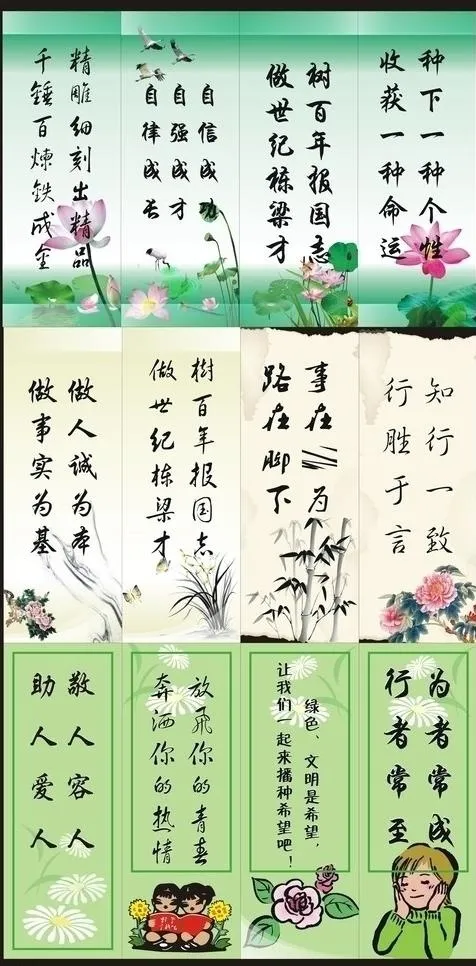 精雕细刻出精品
千锤百煉铁成金
自信成功
自强成才
自律成长
树百年报国志
做世纪栋梁才
种下一种个性
收获一种命运
做人诚为本
做事实为基
樹百年报国志
做世纪栋梁才
事在为
路在脚下
知行一致
行胜于言
敬人容人
助人爱人
放飞你的青春
奔洒你的热情
绿色、文明是希望，
让我们一起来播种希望吧！
为者常成
行者常至